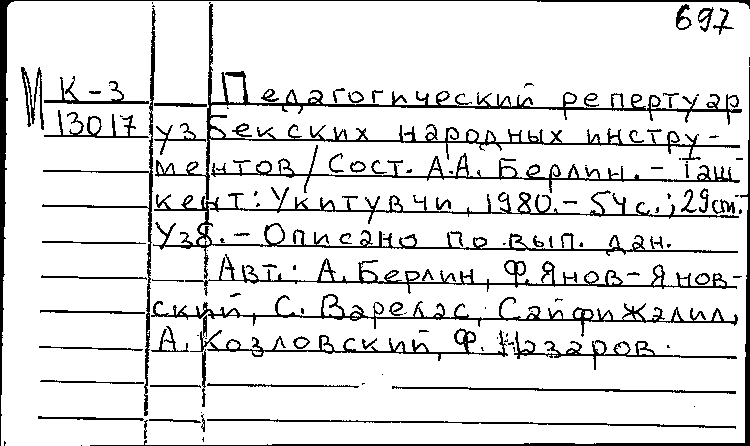 697
М К-3 Педагогический репертуар
13017 узбекских народных инстру-
ментов / Сост. А.А. Берлин. - Таш
кент: Укитувчи, 1980. - 54 с.; 29 cm.
Узб. - Описано по вып. дан.
Авт.: А. Берлин, Ф. Янов-Янов-
ский, С. Варелас, Сайфи Жалил,
А. Козловский, Ф. Назаров.